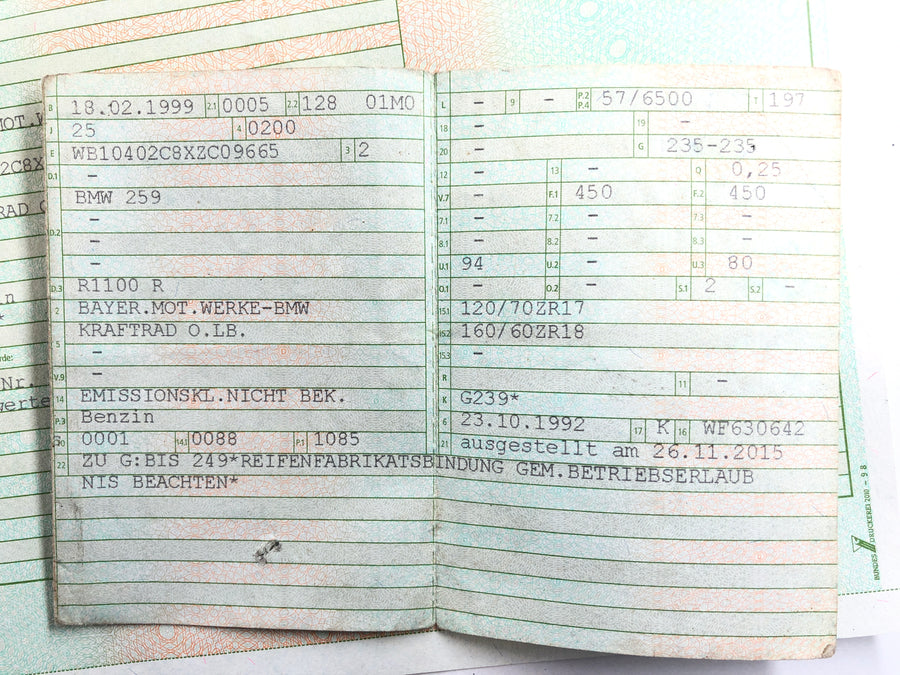 B 18.02.1999 2.1 0005 2.2 128 01M0
J 25 4 0200
E WB10402C8XZC09665 3 2
D.1 –
BMW 259
–
D.2 –
–
D.3 R1100 R
2 BAYER.MOT.WERKE-BMW
KRAFTRAD O.LB.
5 –
V.9 –
14 EMISSIONSKL.NICHT BEK.
P.3 Benzin
10 0001 14.1 0088 P.1 1085
L – 9 – P.2 P.4 57/6500 T 197
18 – 19 –
20 – G 235-235
12 – 13 – Q 0,25
V.7 – F.1 450 F.2 450
7.1 – 7.2 – 7.3 –
8.1 – 8.2 – 8.3 –
U.1 94 U.2 – U.3 80
O.1 – O.2 – S.1 2 S.2 –
15.1 120/70ZR17
15.2 160/60ZR18
15.3 –
R 11 –
K G239*
6 23.10.1992 17 K 16 WF630642
21 ausgestellt am 26.11.2015
22 ZU G:BIS 249*REIFENFABRIKATSBINDUNG GEM.BETRIEBSERLAUB
NIS BEACHTEN*
MOT.
2C8X
RAD
Nr.
werte
BUNDESDRUCKEREI